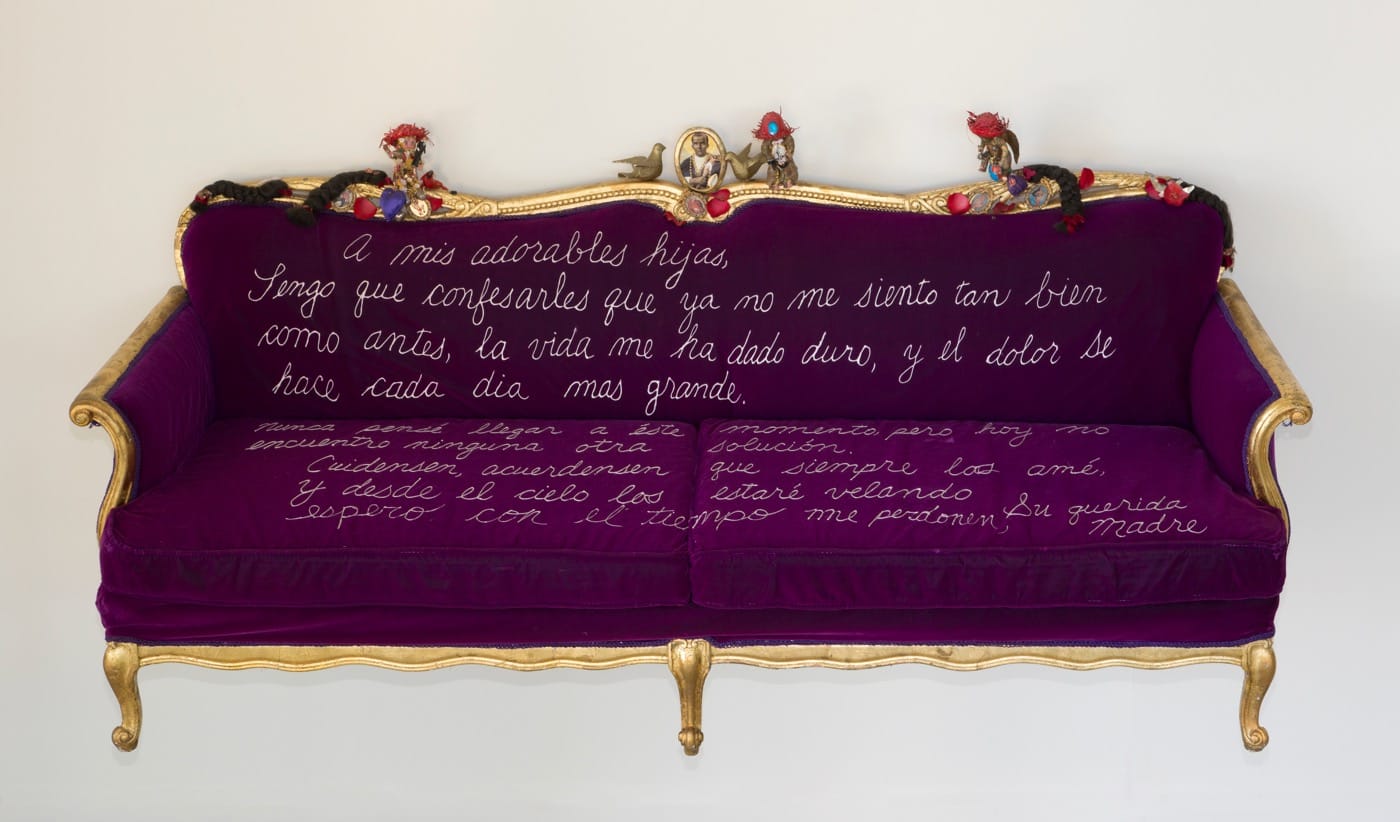 A mis adorables hijas,
Tengo que confesarles que ya no me siento tan bien
como antes, la vida me ha dado duro, y el dolor se
hace cada dia mas grande.
nunca pensé llegar a éste momento, pero hoy no
encuentro ninguna otra solución.
Cuidensen, acuerdensen que siempre las amé,
y desde el cielo los estaré velando
espero con el tiempo me perdonen, Su querida
Madre